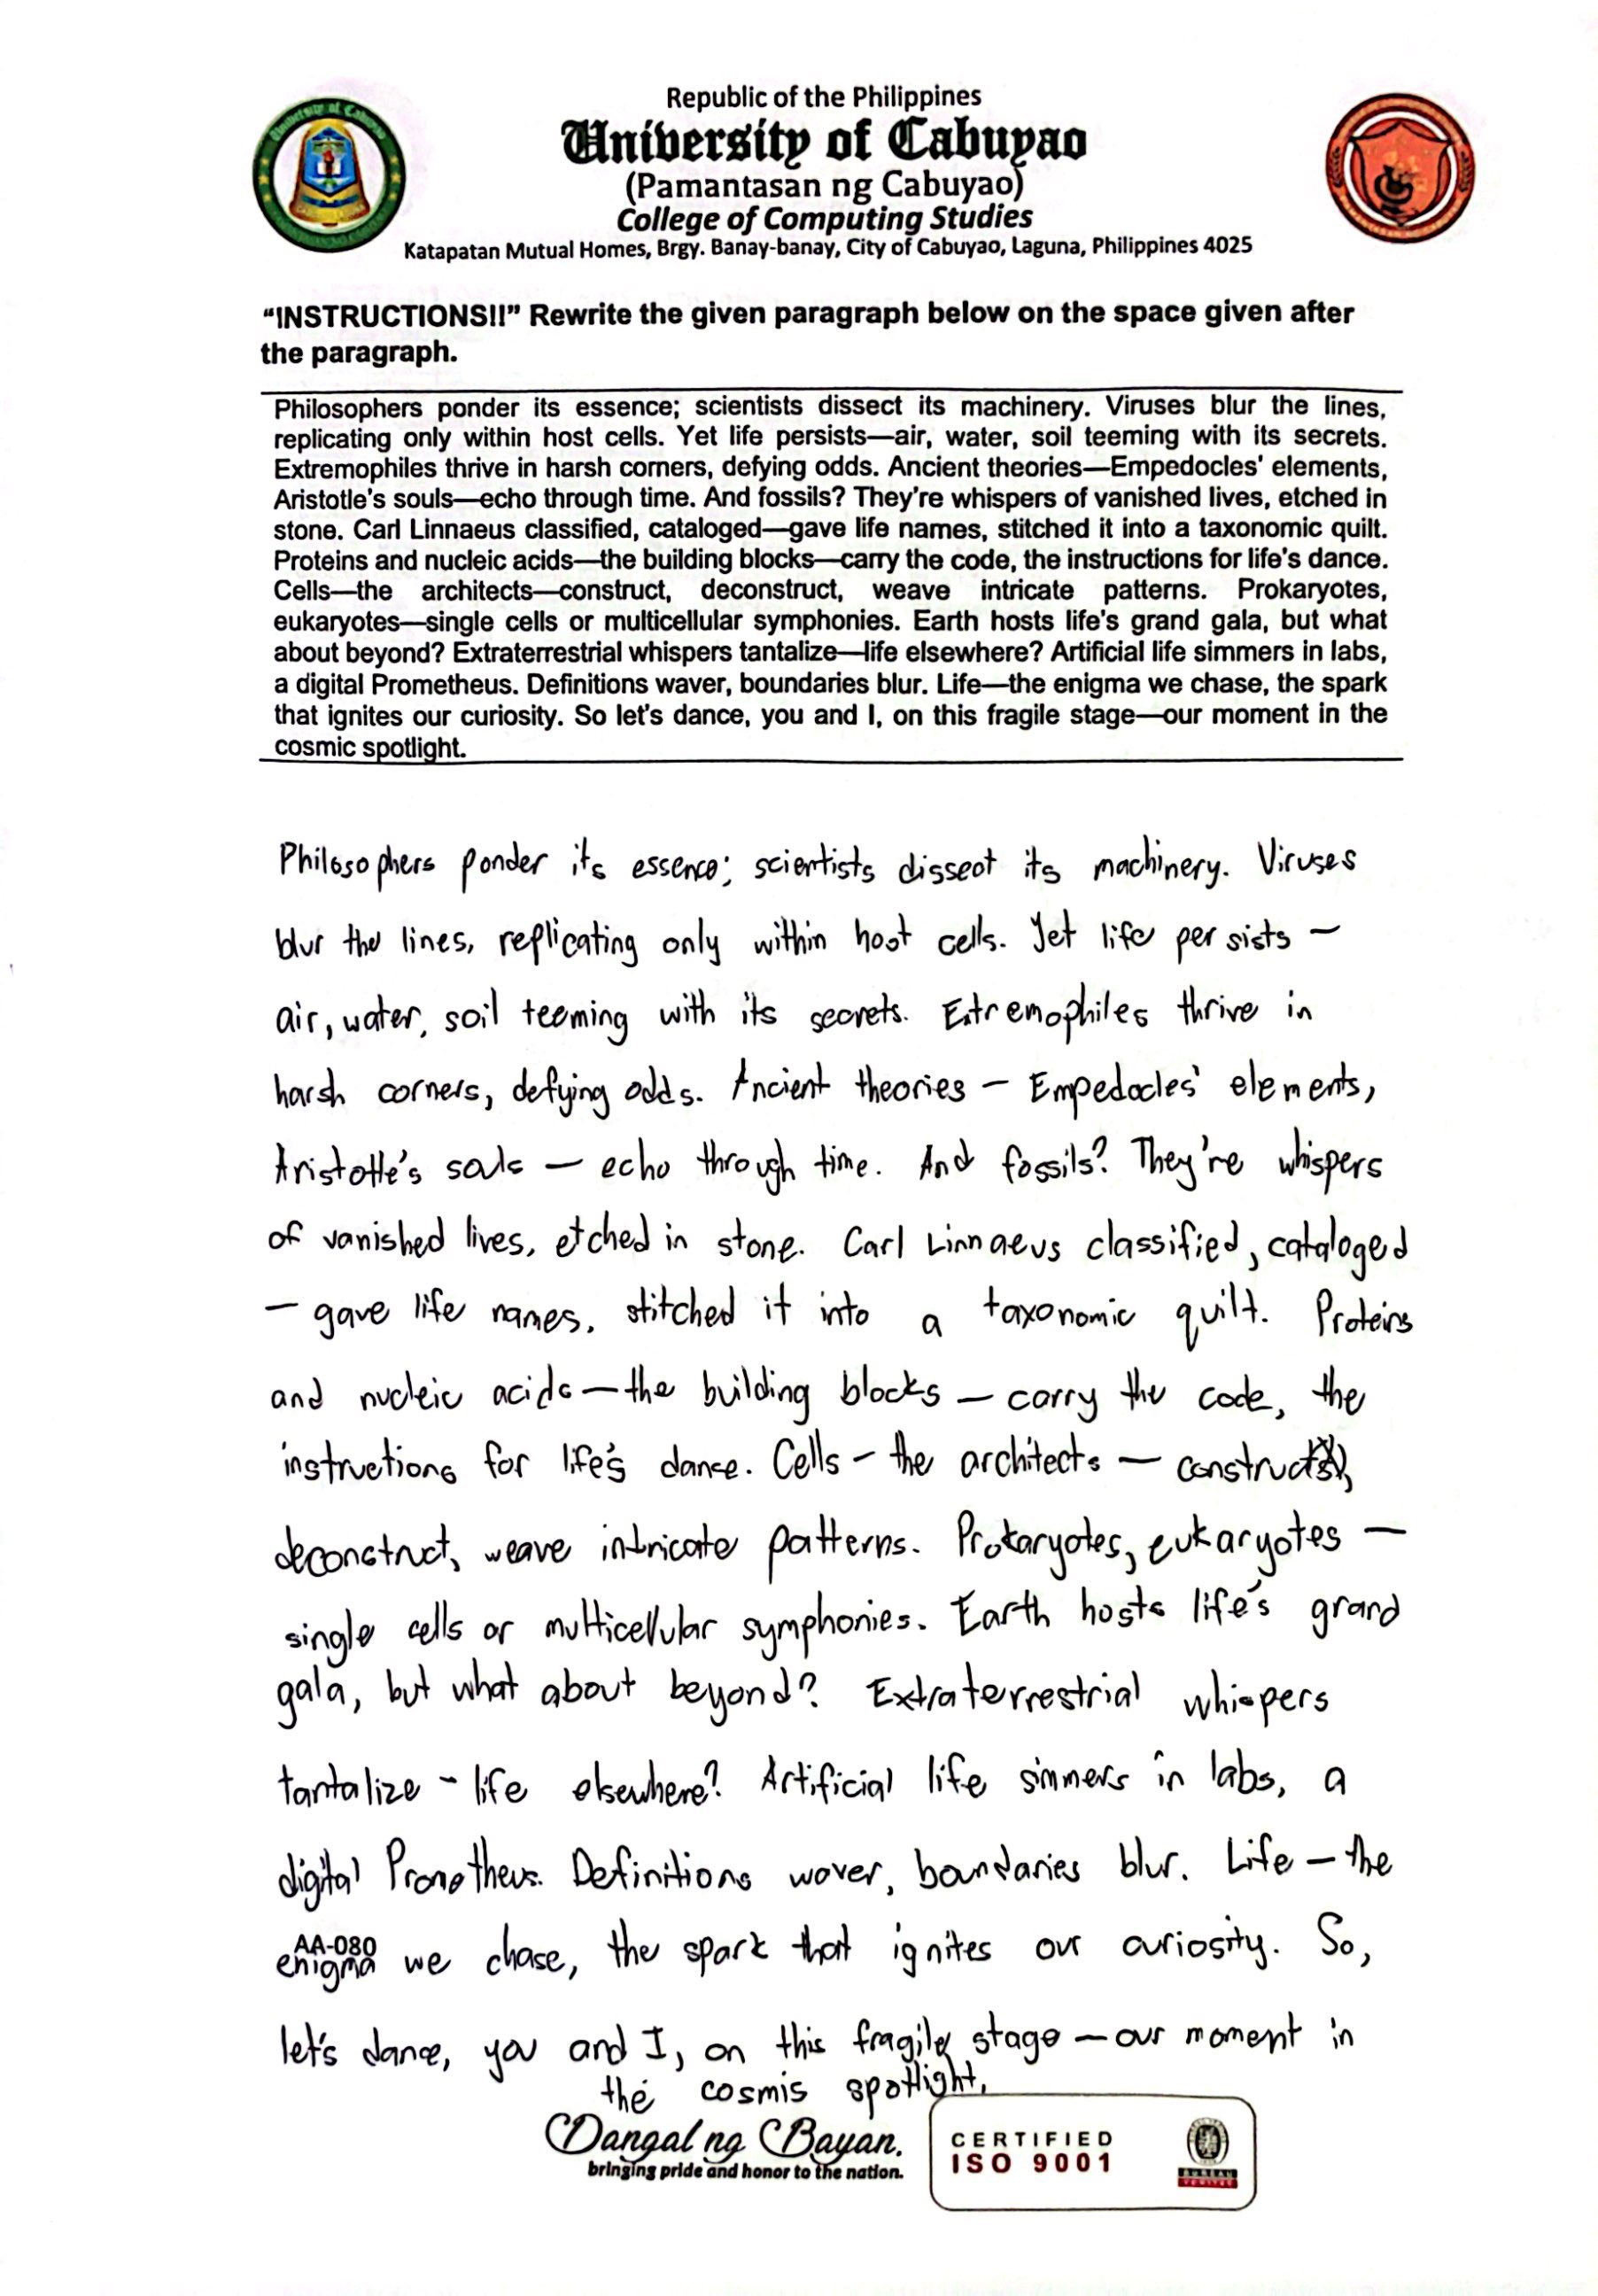 Republic of the Philippines
University of Cabuyao
(Pamantasan ng Cabuyao)
College of Computing Studies
Katapatan Mutual Homes, Brgy. Banay-banay, City of Cabuyao, Laguna, Philippines 4025
“INSTRUCTIONS!!” Rewrite the given paragraph below on the space given after
the paragraph.
Philosophers ponder its essence; scientists dissect its machinery. Viruses blur the lines,
replicating only within host cells. Yet life persists—air, water, soil teeming with its secrets.
Extremophiles thrive in harsh corners, defying odds. Ancient theories—Empedocles’ elements,
Aristotle’s souls—echo through time. And fossils? They’re whispers of vanished lives, etched in
stone. Carl Linnaeus classified, cataloged—gave life names, stitched it into a taxonomic quilt.
Proteins and nucleic acids—the building blocks—carry the code, the instructions for life’s dance.
Cells—the architects—construct, deconstruct, weave intricate patterns. Prokaryotes,
eukaryotes—single cells or multicellular symphonies. Earth hosts life’s grand gala, but what
about beyond? Extraterrestrial whispers tantalize—life elsewhere? Artificial life simmers in labs,
a digital Prometheus. Definitions waver, boundaries blur. Life—the enigma we chase, the spark
that ignites our curiosity. So let’s dance, you and I, on this fragile stage—our moment in the
cosmic spotlight.
Philosophers ponder its essence; scientists dissect its machinery. Viruses
blur the lines, replicating only within host cells. Yet life persists –
air, water, soil teeming with its secrets. Extremophiles thrive in
harsh corners, defying odds. Ancient theories – Empedocles' elements,
Aristotle's souls – echo through time. And fossils? They're whispers
of vanished lives, etched in stone. Carl Linnaeus classified, cataloged
– gave life names, stitched it into a taxonomic quilt. Proteins
and nucleic acids – the building blocks – carry the code, the
instructions for life's dance. Cells – the architects – construct,
deconstruct, weave intricate patterns. Prokaryotes, eukaryotes –
single cells or multicellular symphonies. Earth hosts life's grand
gala, but what about beyond? Extraterrestrial whispers
tantalize – life elsewhere? Artificial life simmers in labs, a
digital Prometheus. Definitions waver, boundaries blur. Life – the
AA-080
enigma we chase, the spark that ignites our curiosity. So,
let's dance, you and I, on this fragile stage – our moment in
the cosmis spotlight.
Dangal ng Bayan.
bringing pride and honor to the nation.
CERTIFIED
ISO 9001
BUREAU
VERITAS